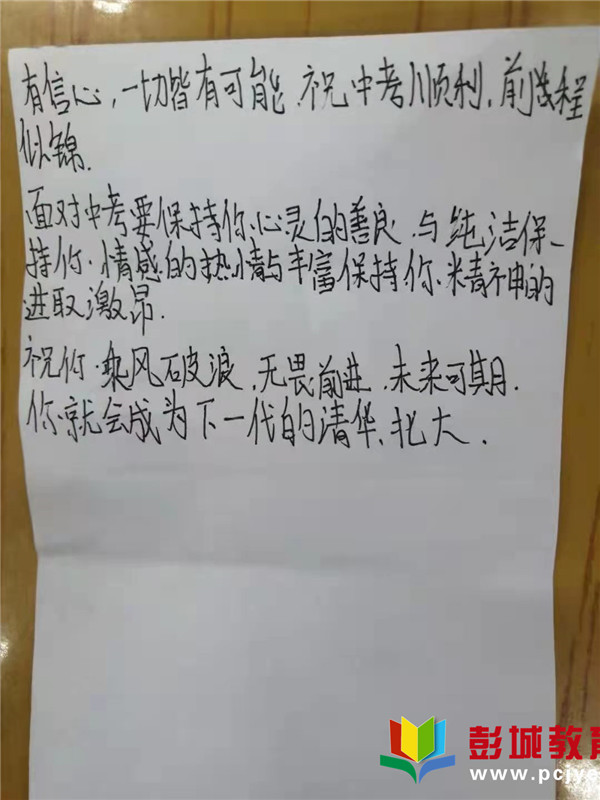 有信心,一切皆有可能.祝中考顺利,前程
似锦.
面对中考要保持你心灵的善良.与纯洁保
持你.情感的热情与丰富保持你.精神的
进取激昂.
祝你.乘风破浪,无畏前进.未来可期.
你.就会成为下一代的清华,北大.
彭城教育
www.pcjye